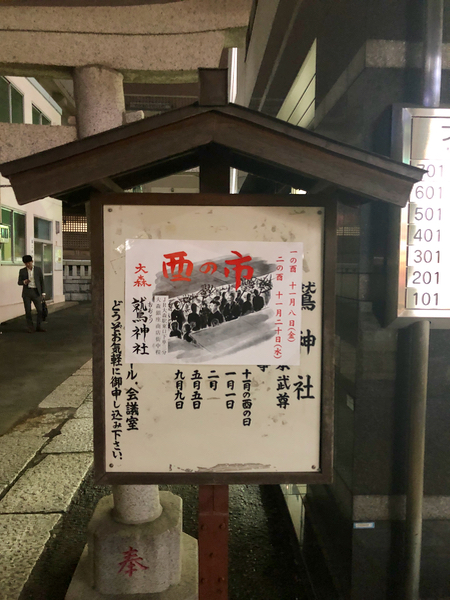 酉の市
一の酉 十一月八日(金)
二の酉 十一月二十日(水)
大森
鷲神社
鷲神社
武尊
十一月の酉の日
一月一日
二月
五月五日
九月九日
ール、会議室
どうぞお気軽に御申し込み下さい。
奉
701
601
501
401
301
201
101